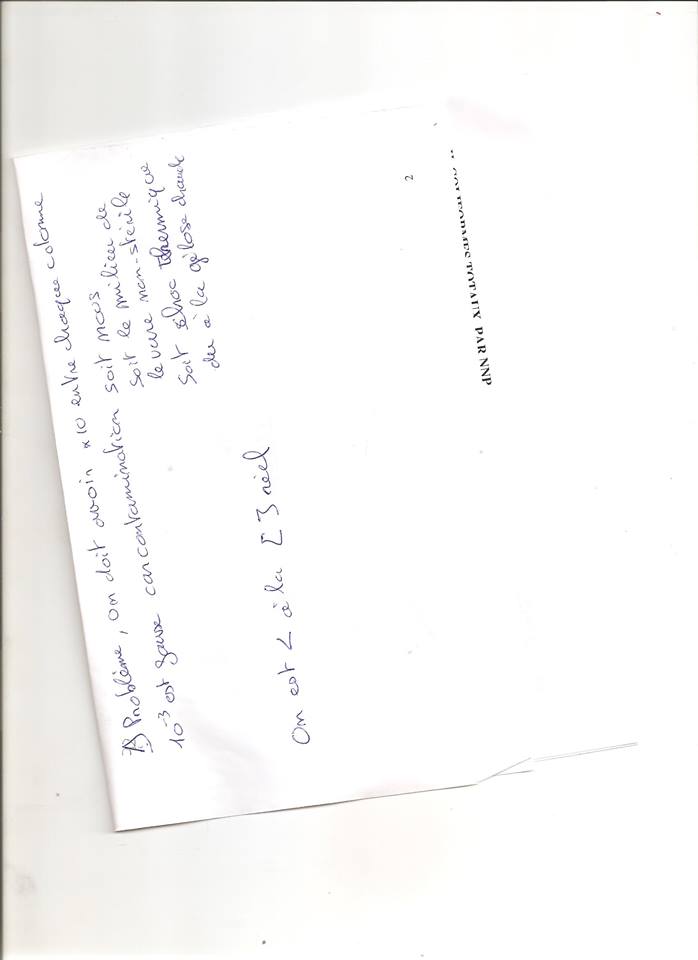 7) Problème, on doit avoir x10 entre chaque colonne
10⁻³ est fausse car contamination soit nous
soit le milieu de
levure non-stérile
soit choc thermique
du à la gélose chaude
On est < à la [ ] réel
2
TOTAUX PAR NNP